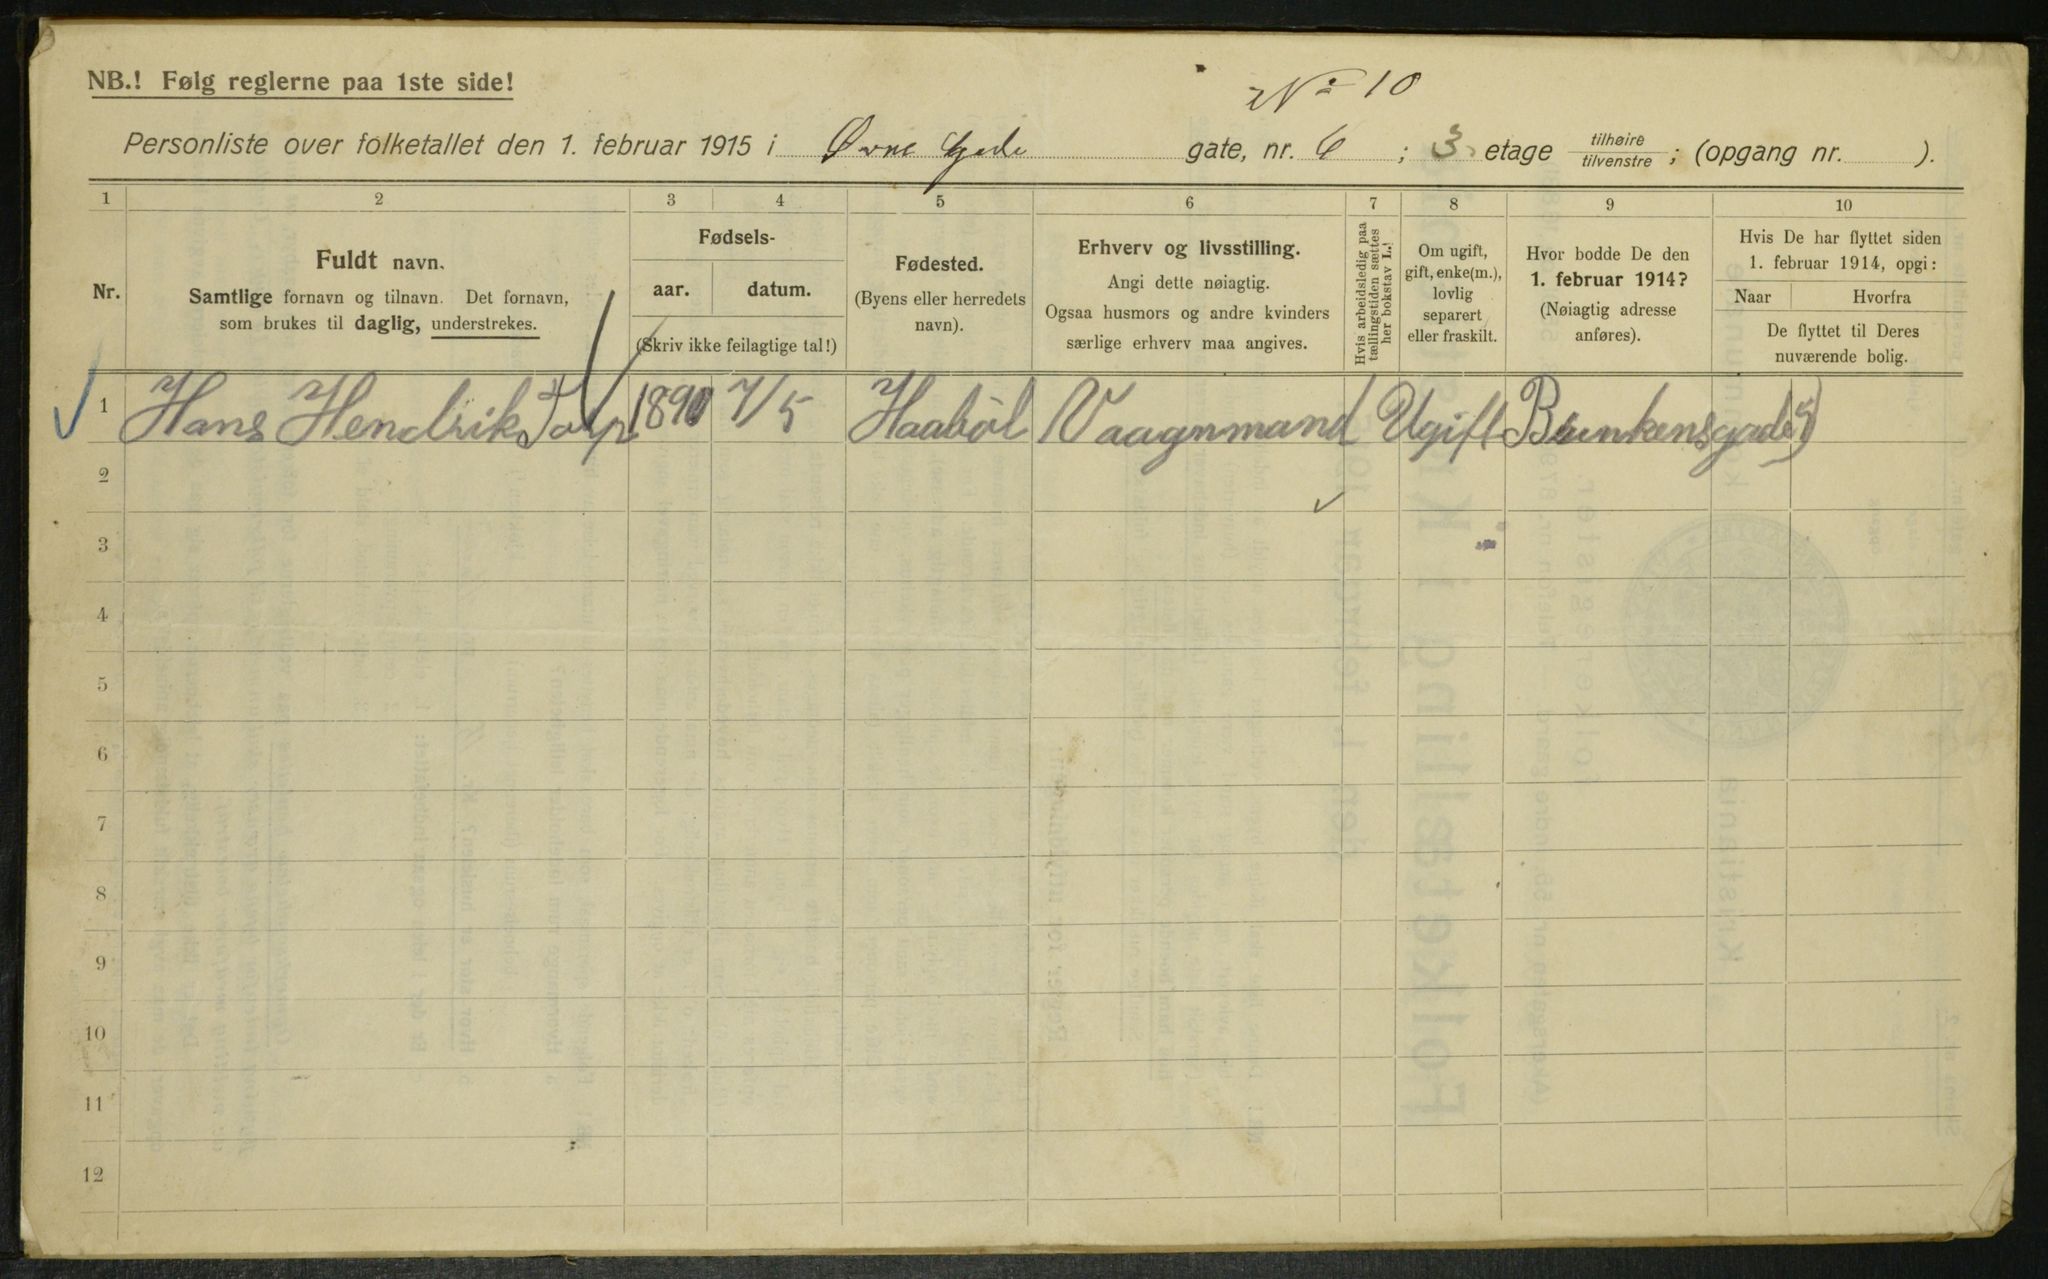 NB.! Følg reglerne paa 1ste side!
No 10
Personliste over folketallet den 1. februar 1915 i Øvre Gade gate, nr. 6 ; 3. etage tilhøire tilvenstre ; (opgang nr. ).
1 2 3 4 5 6 7 8 9 10
Nr.
Fuldt navn.
Samtlige fornavn og tilnavn. Det fornavn,
som brukes til daglig, understrekes.
Fødsels-
aar. datum.
(Skriv ikke feilagtige tal!)
Fødested.
(Byens eller herredets
navn).
Erhverv og livsstilling.
Angi dette nøiagtig.
Ogsaa husmors og andre kvinders
særlige erhverv maa angives.
Hvis arbeidsledig paa
tællingstiden sættes
her bokstav L.!
Om ugift,
gift, enke(m.),
lovlig
separert
eller fraskilt.
Hvor bodde De den
1. februar 1914?
(Nøiagtig adresse
anføres).
Hvis De har flyttet siden
1. februar 1914, opgi:
Naar Hvorfra
De flyttet til Deres
nuværende bolig.
1 Hans Hendrik Torp 1890 7/5 Haaböl Vaagnmand Ugift Brenkensgade 5
2
3
4
5
6
7
8
9
10
11
12